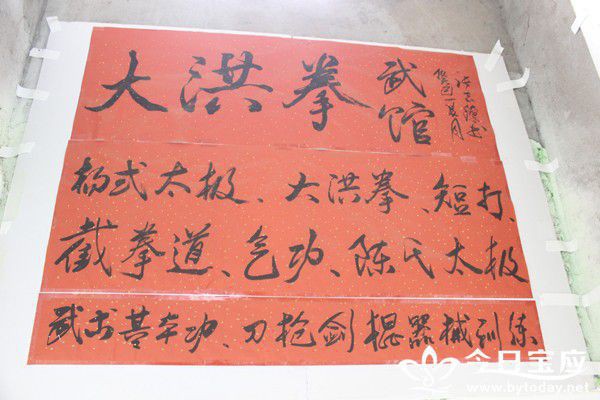 大洪拳武馆
杨式太极、大洪拳、短打、
截拳道、气功、陈氏太极
武术基本功、刀枪剑棍器械训练
今日宝应
www.bytoday.net